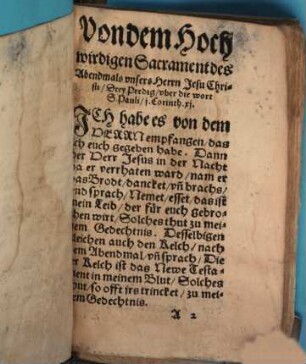 Von dem Hoch
wirdigen Sacrament des
Abendmals unsers Herrn Jesu Chri-
sti/ Drey Predig/ vber die wort
S. Pauli/ j. Corinth. xj.
ICH habe es von dem
HERRN empfangen, das
ich euch gegeben habe. Dann
der Herr Jesus in der Nacht
da er verrhaten ward/ nam er
das Brodt/ dancket/ vñ brachs/
und sprach/ Nemet/ esset/ das ist
mein Leib/ der für euch gebro-
chen wirt/ Solches thut zu mei-
nem Gedechtnis. Desselbigen
gleichen auch den Kelch/ nach
dem Abendmal/ vñ sprach/ Die
ser Kelch ist das Newe Testa-
ment in meinem Blut/ Solches
thut, so offt irs trincket/ zu mei-
nem Gedechtnis.
A 2